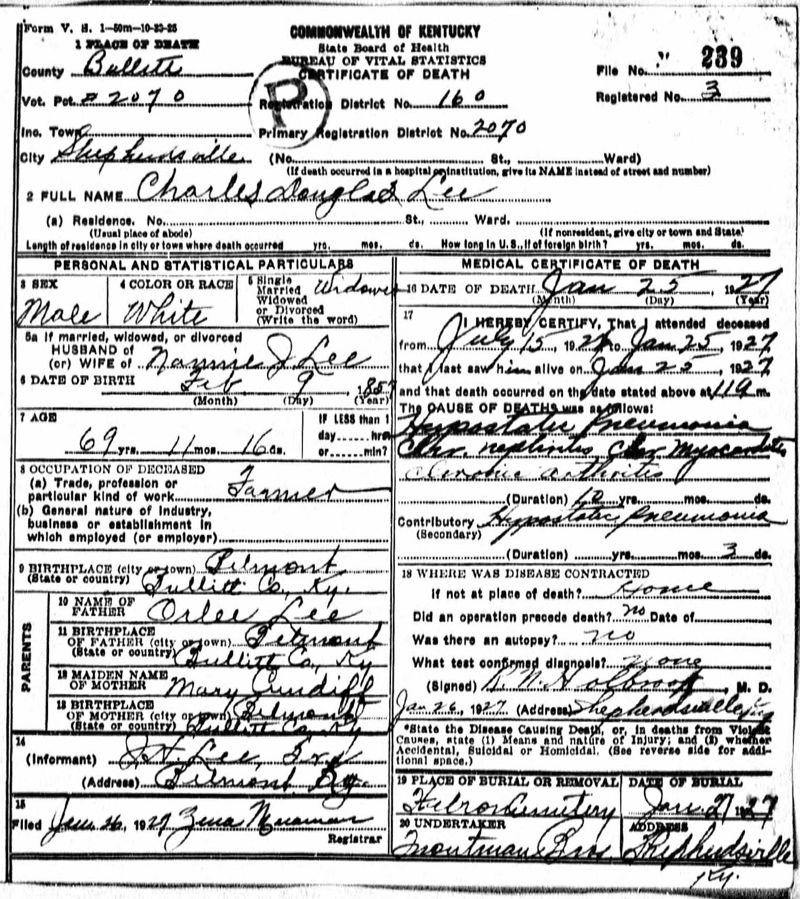 Form V. S. 1-50m-10-23-25
COMMONWEALTH OF KENTUCKY
State Board of Health
BUREAU OF VITAL STATISTICS
CERTIFICATE OF DEATH
1 PLACE OF DEATH
County Bullitt
File No. 239
Vot. Pct. #2070
Registration District No. 160
Registered No. 3
P
Inc. Town
Primary Registration District No. 2070
City Shepherdsville (No. St., Ward)
(If death occurred in a hospital or institution, give its NAME instead of street and number)
2 FULL NAME Charles Douglas Lee
(a) Residence. No. St., Ward.
(Usual place of abode) (If nonresident, give city or town and State)
Length of residence in city or town where death occurred yrs. mos. ds. How long in U.S., if of foreign birth? yrs. mos. ds.
PERSONAL AND STATISTICAL PARTICULARS
3 SEX
Male
4 COLOR OR RACE
White
5 Single
Married
Widowed
or Divorced
(Write the word)
Widower
5a If married, widowed, or divorced
HUSBAND of
(or) WIFE of Nannie J Lee
6 DATE OF BIRTH Feb 9, 1857
(Month) (Day) (Year)
7 AGE
69 yrs. 11 mos. 16 ds.
IF LESS than 1
day hrs
or min?
8 OCCUPATION OF DECEASED
(a) Trade, profession or
particular kind of work Farmer
(b) General nature of industry,
business or establishment in
which employed (or employer)
9 BIRTHPLACE (city or town) Belmont
(State or country) Bullitt Co, Ky.
PARENTS
10 NAME OF
FATHER Orlee Lee
11 BIRTHPLACE
OF FATHER (city or town) Belmont
(State or country) Bullitt Co, Ky
12 MAIDEN NAME
OF MOTHER Mary Cundiff
13 BIRTHPLACE
OF MOTHER (city or town) Belmont
(State or country) Bullitt Co, Ky
14
(Informant) Lee,
(Address) Belmont Ky.
15
Filed Jan 26, 1927 Zena
Registrar
MEDICAL CERTIFICATE OF DEATH
16 DATE OF DEATH Jan 25, 1927
(Month) (Day) (Year)
17
I HEREBY CERTIFY, That I attended deceased
from July 15, 192 to Jan 25, 1927
that I last saw him alive on Jan 25, 1927
and that death occurred on the date stated above at m.
The CAUSE OF DEATH* was as follows:
Hypostatic Pneumonia
Chr. nephritis, Chr. Myocarditis
Chronic arthritis
(Duration) 10 yrs. mos. ds.
Contributory Hypostatic Pneumonia
(Secondary)
(Duration) yrs. mos. 3 ds.
18 WHERE WAS DISEASE CONTRACTED
If not at place of death? Home
Did an operation precede death? no Date of
Was there an autopsy? no
What test confirmed diagnosis? none
(Signed) R N Holbrook, M. D.
Jan 26, 1927 (Address) Shepherdsville, Ky
*State the Disease Causing Death, or, in deaths from Violent
Causes, state (1) Means and nature of Injury; and (2) whether
Accidental, Suicidal or Homicidal. (See reverse side for addi-
tional space.)
19 PLACE OF BURIAL OR REMOVAL
Cemetery
DATE OF BURIAL
Jan. 27 1927
20 UNDERTAKER
Troutman Bros.
ADDRESS
Shepherdsville
Ky.